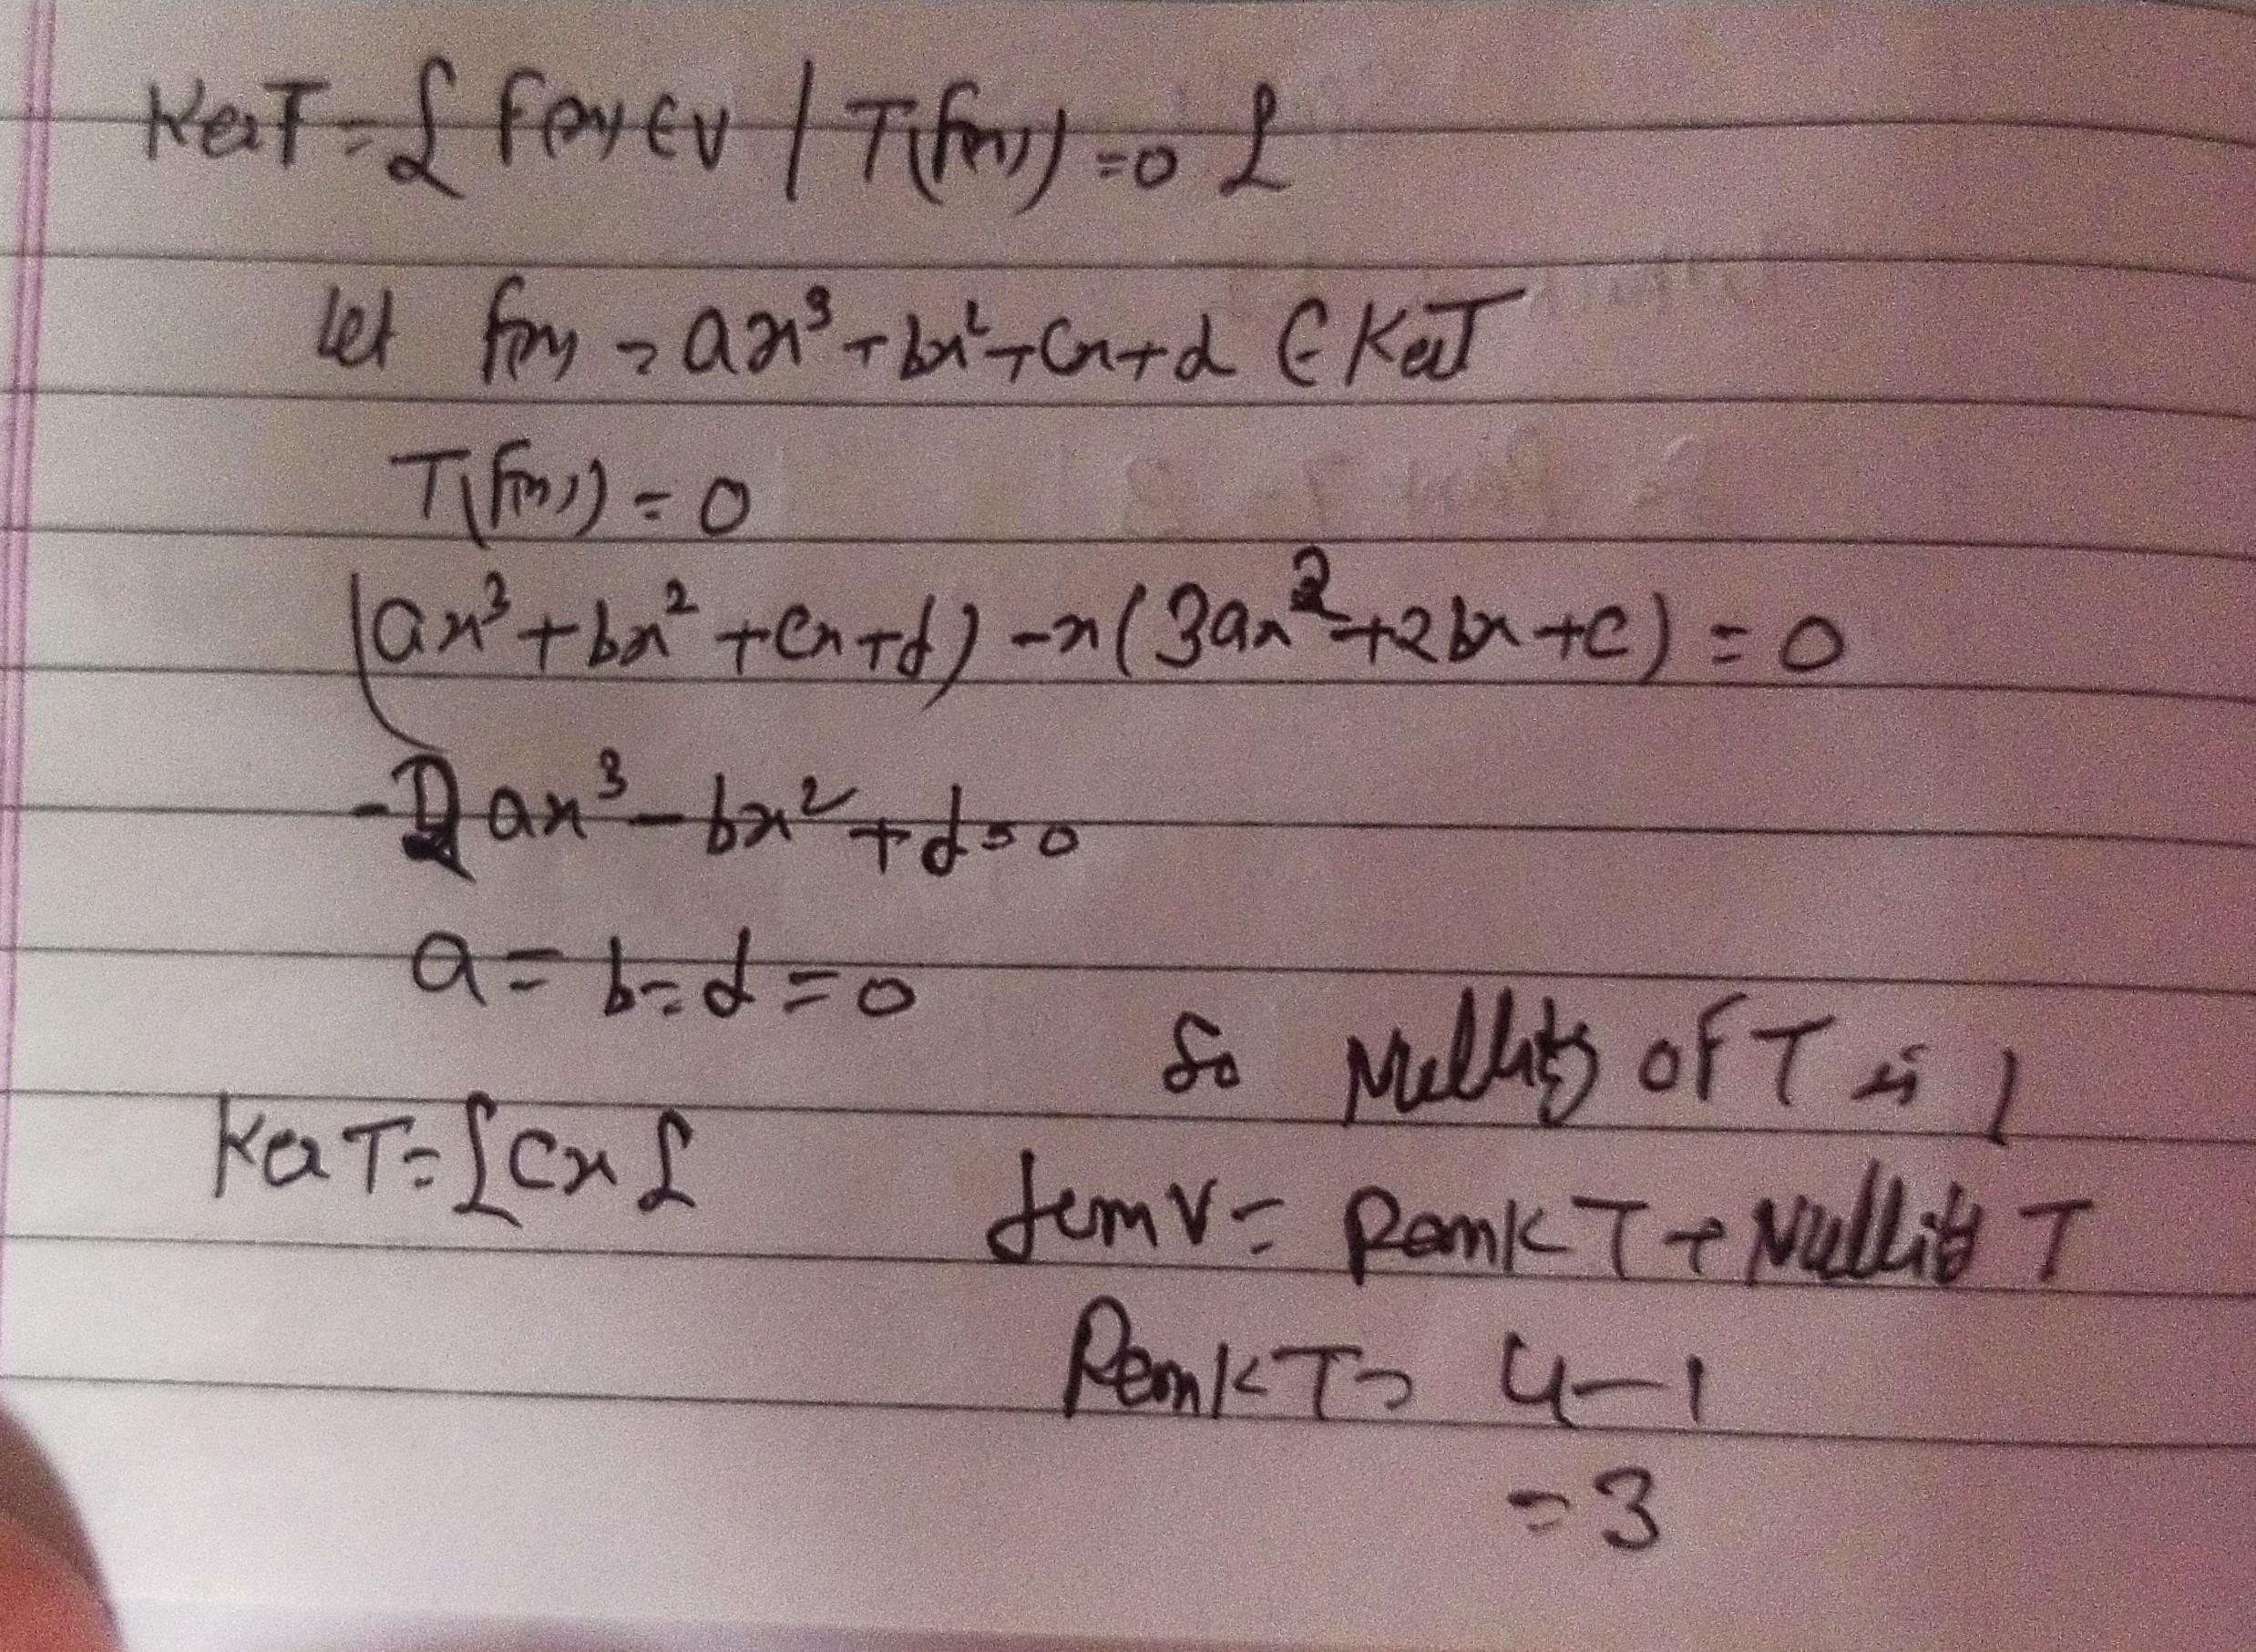 Ker T = { f(x) ∈ V / T(f(x)) = 0 }
Let f(x) = ax³ + bx² + cx + d ∈ Ker T
T(f(x)) = 0
(ax³ + bx² + cx + d) - x(3ax² + 2bx + c) = 0
-2ax³ - bx² + d = 0
a = b = d = 0
So Nullity of T is 1
Ker T = { cx }
dim V = Rank T + Nullity T
Rank T = 4 - 1
= 3